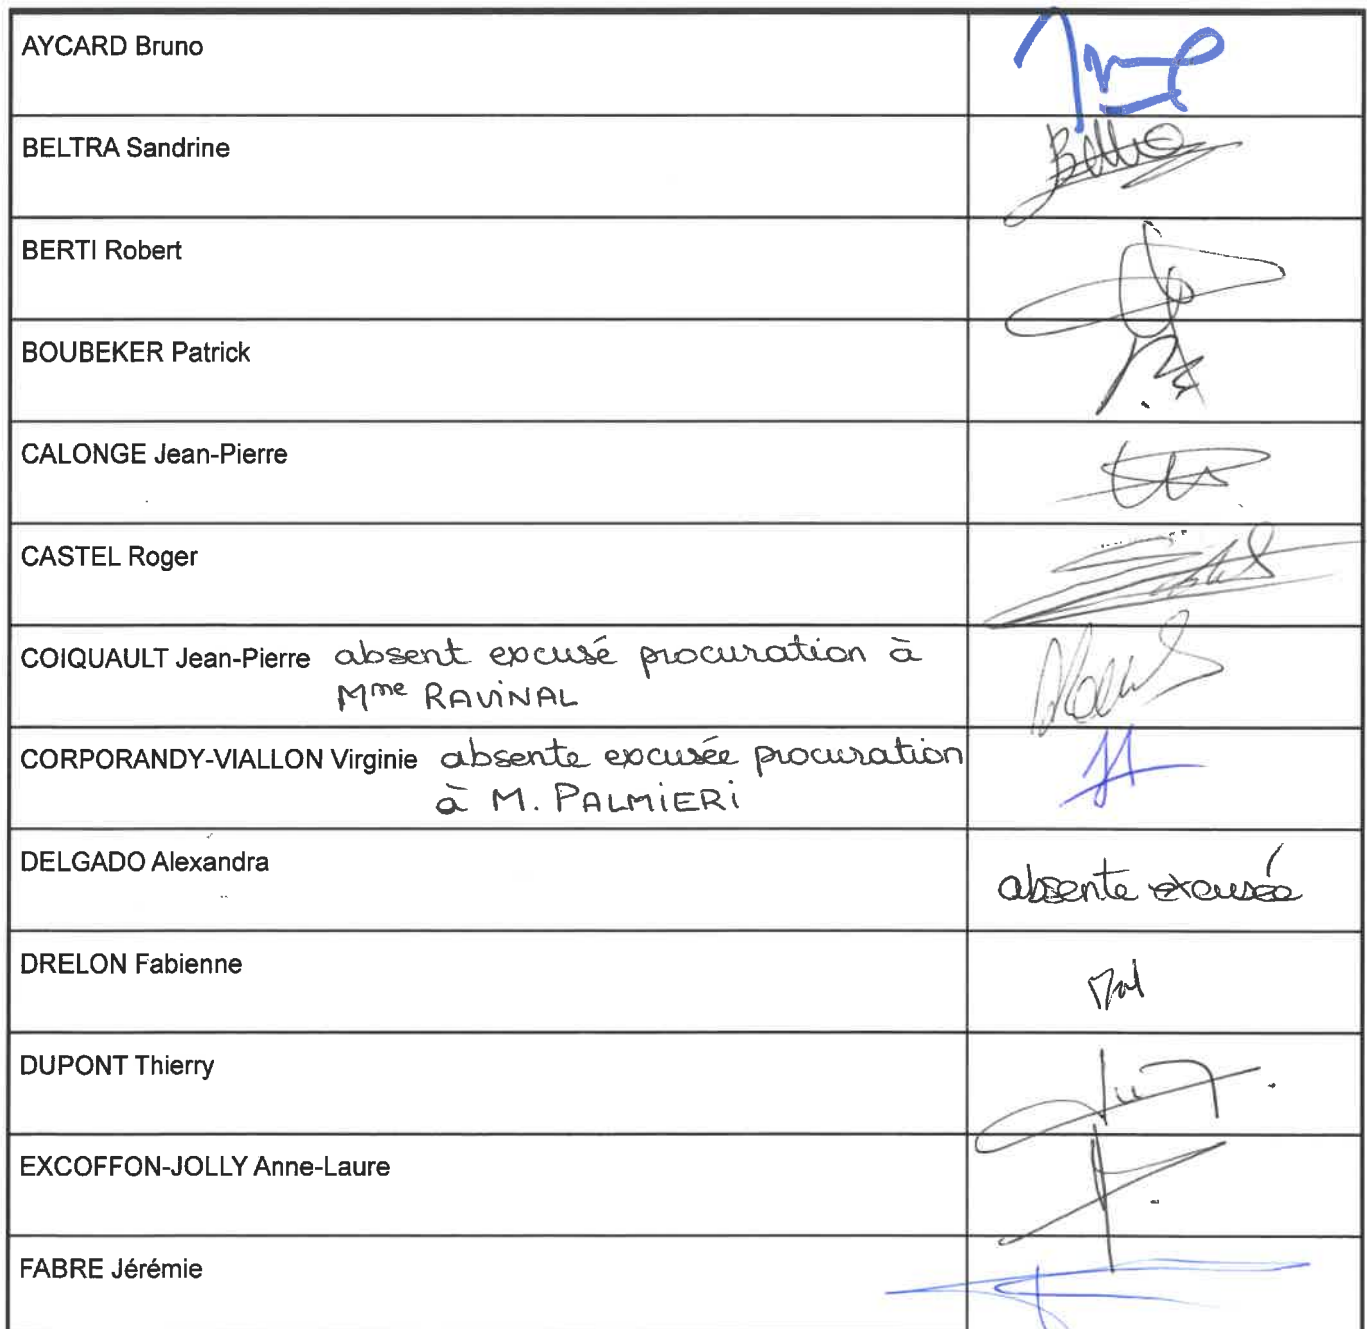 AYCARD Bruno
BELTRA Sandrine
BERTI Robert
BOUBEKER Patrick
CALONGE Jean-Pierre
CASTEL Roger
COIQUAULT Jean-Pierre absent excusé procuration à
Mme RAVINAL
CORPORANDY-VIALLON Virginie absente excusée procuration
à M. PALMIERI
DELGADO Alexandra absente excusée
DRELON Fabienne
DUPONT Thierry
EXCOFFON-JOLLY Anne-Laure
FABRE Jérémie